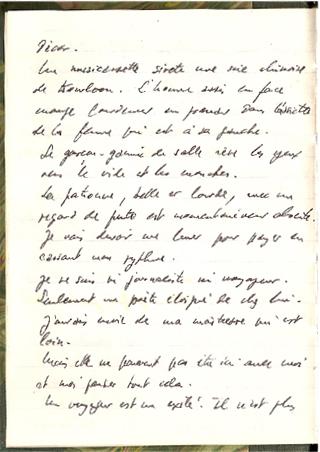 Décor.
Une
de Kowloon. L'homme assis en face
mange en prendre dans l'assiette
de la femme qui est à sa gauche.
Le garçon-gamin de salle rêve les yeux
vers le vide et les mouches.
La patronne, belle et lourde, avec un
regard de pute est momentanément absente.
Je vais devoir me lever pour payer en
cassant mon rythme.
Je ne suis ni journaliste ni voyageur.
Seulement un poète éloigné de chez lui.
J'aurais envie de ma maîtresse qui est
loin.
Mais elle ne pouvant pas être ici avec moi
et moi penser tout cela.
Un voyageur est un exilé. Il n'est plus